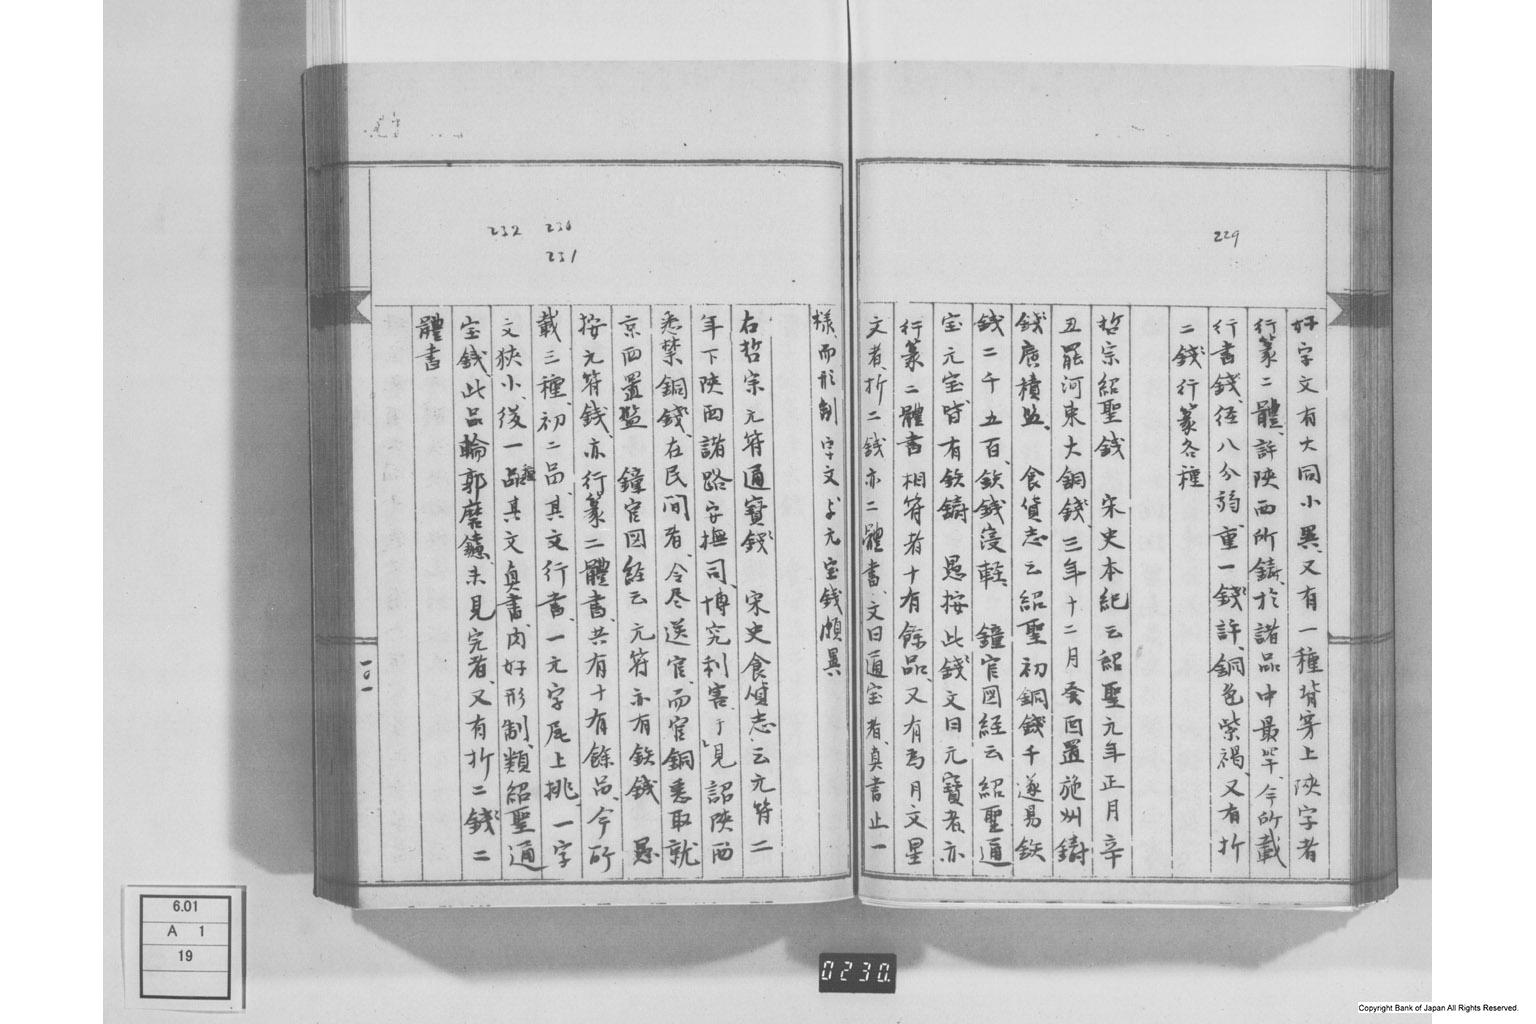 229
好字文有大同小異、又有一種背穿上陝字者
行篆二體、許陝西所鑄、於諸品中最罕、今所載
行書錢、径八分弱重一錢許、銅色紫褐、又有折
二錢行篆各種
哲宗紹聖錢　宋史本紀云紹聖元年正月辛
丑罷河東大銅錢、三年十二月癸酉置施州鑄
錢廣積監、食貨志云紹聖初銅錢千遂易鉄
錢二千五百、鉄錢寖軽、鐘官図経云紹聖通
宝元宝皆有鉄鑄　愚按此錢文曰元寶者亦
行篆二體書相符者十有餘品、又有為月文星
文者、折二錢亦二體書、文曰通宝者、真書止一
230
231
232
様、而形制字文与元宝錢頗異
右哲宗元符通寶錢　宋史食貨志云元符二
年下陝西諸路安撫司、博究利害、于是詔陝西
悉禁銅錢、在民間者、令尽送官、而官銅悉取就
京西置監　鐘官図経云元符亦有鉄錢　愚
按元符錢、亦行篆二體書、共有十有餘品、今所
載三種、初二品、其文行書、一元字尾上挑、一字
文狭小、後一品其文真書、内好形制、類紹聖通
宝錢、此品輪郭磨鑢、未見完者、又有折二錢二
體書
一〇一
6.01
A 1
19
0230.
Copyright Bank of Japan All Rights Reserved.